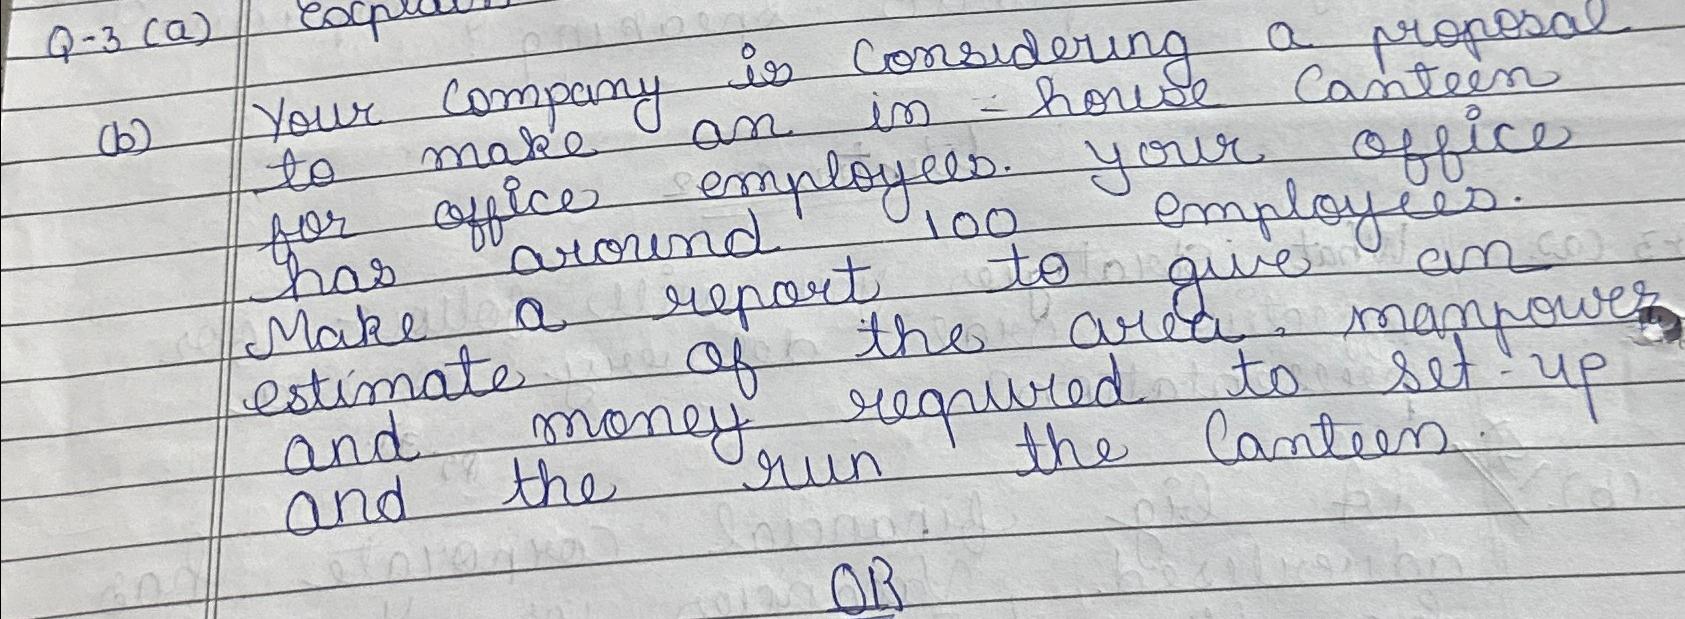 Q-3 (a)
(b) Your Company is Considering a proposal
to make an in-house Canteen
for office employees. your office
has around 100 employees.
Make a report to give an
estimate of the area, manpower
and money required to set-up
and the run the Canteen.
OR